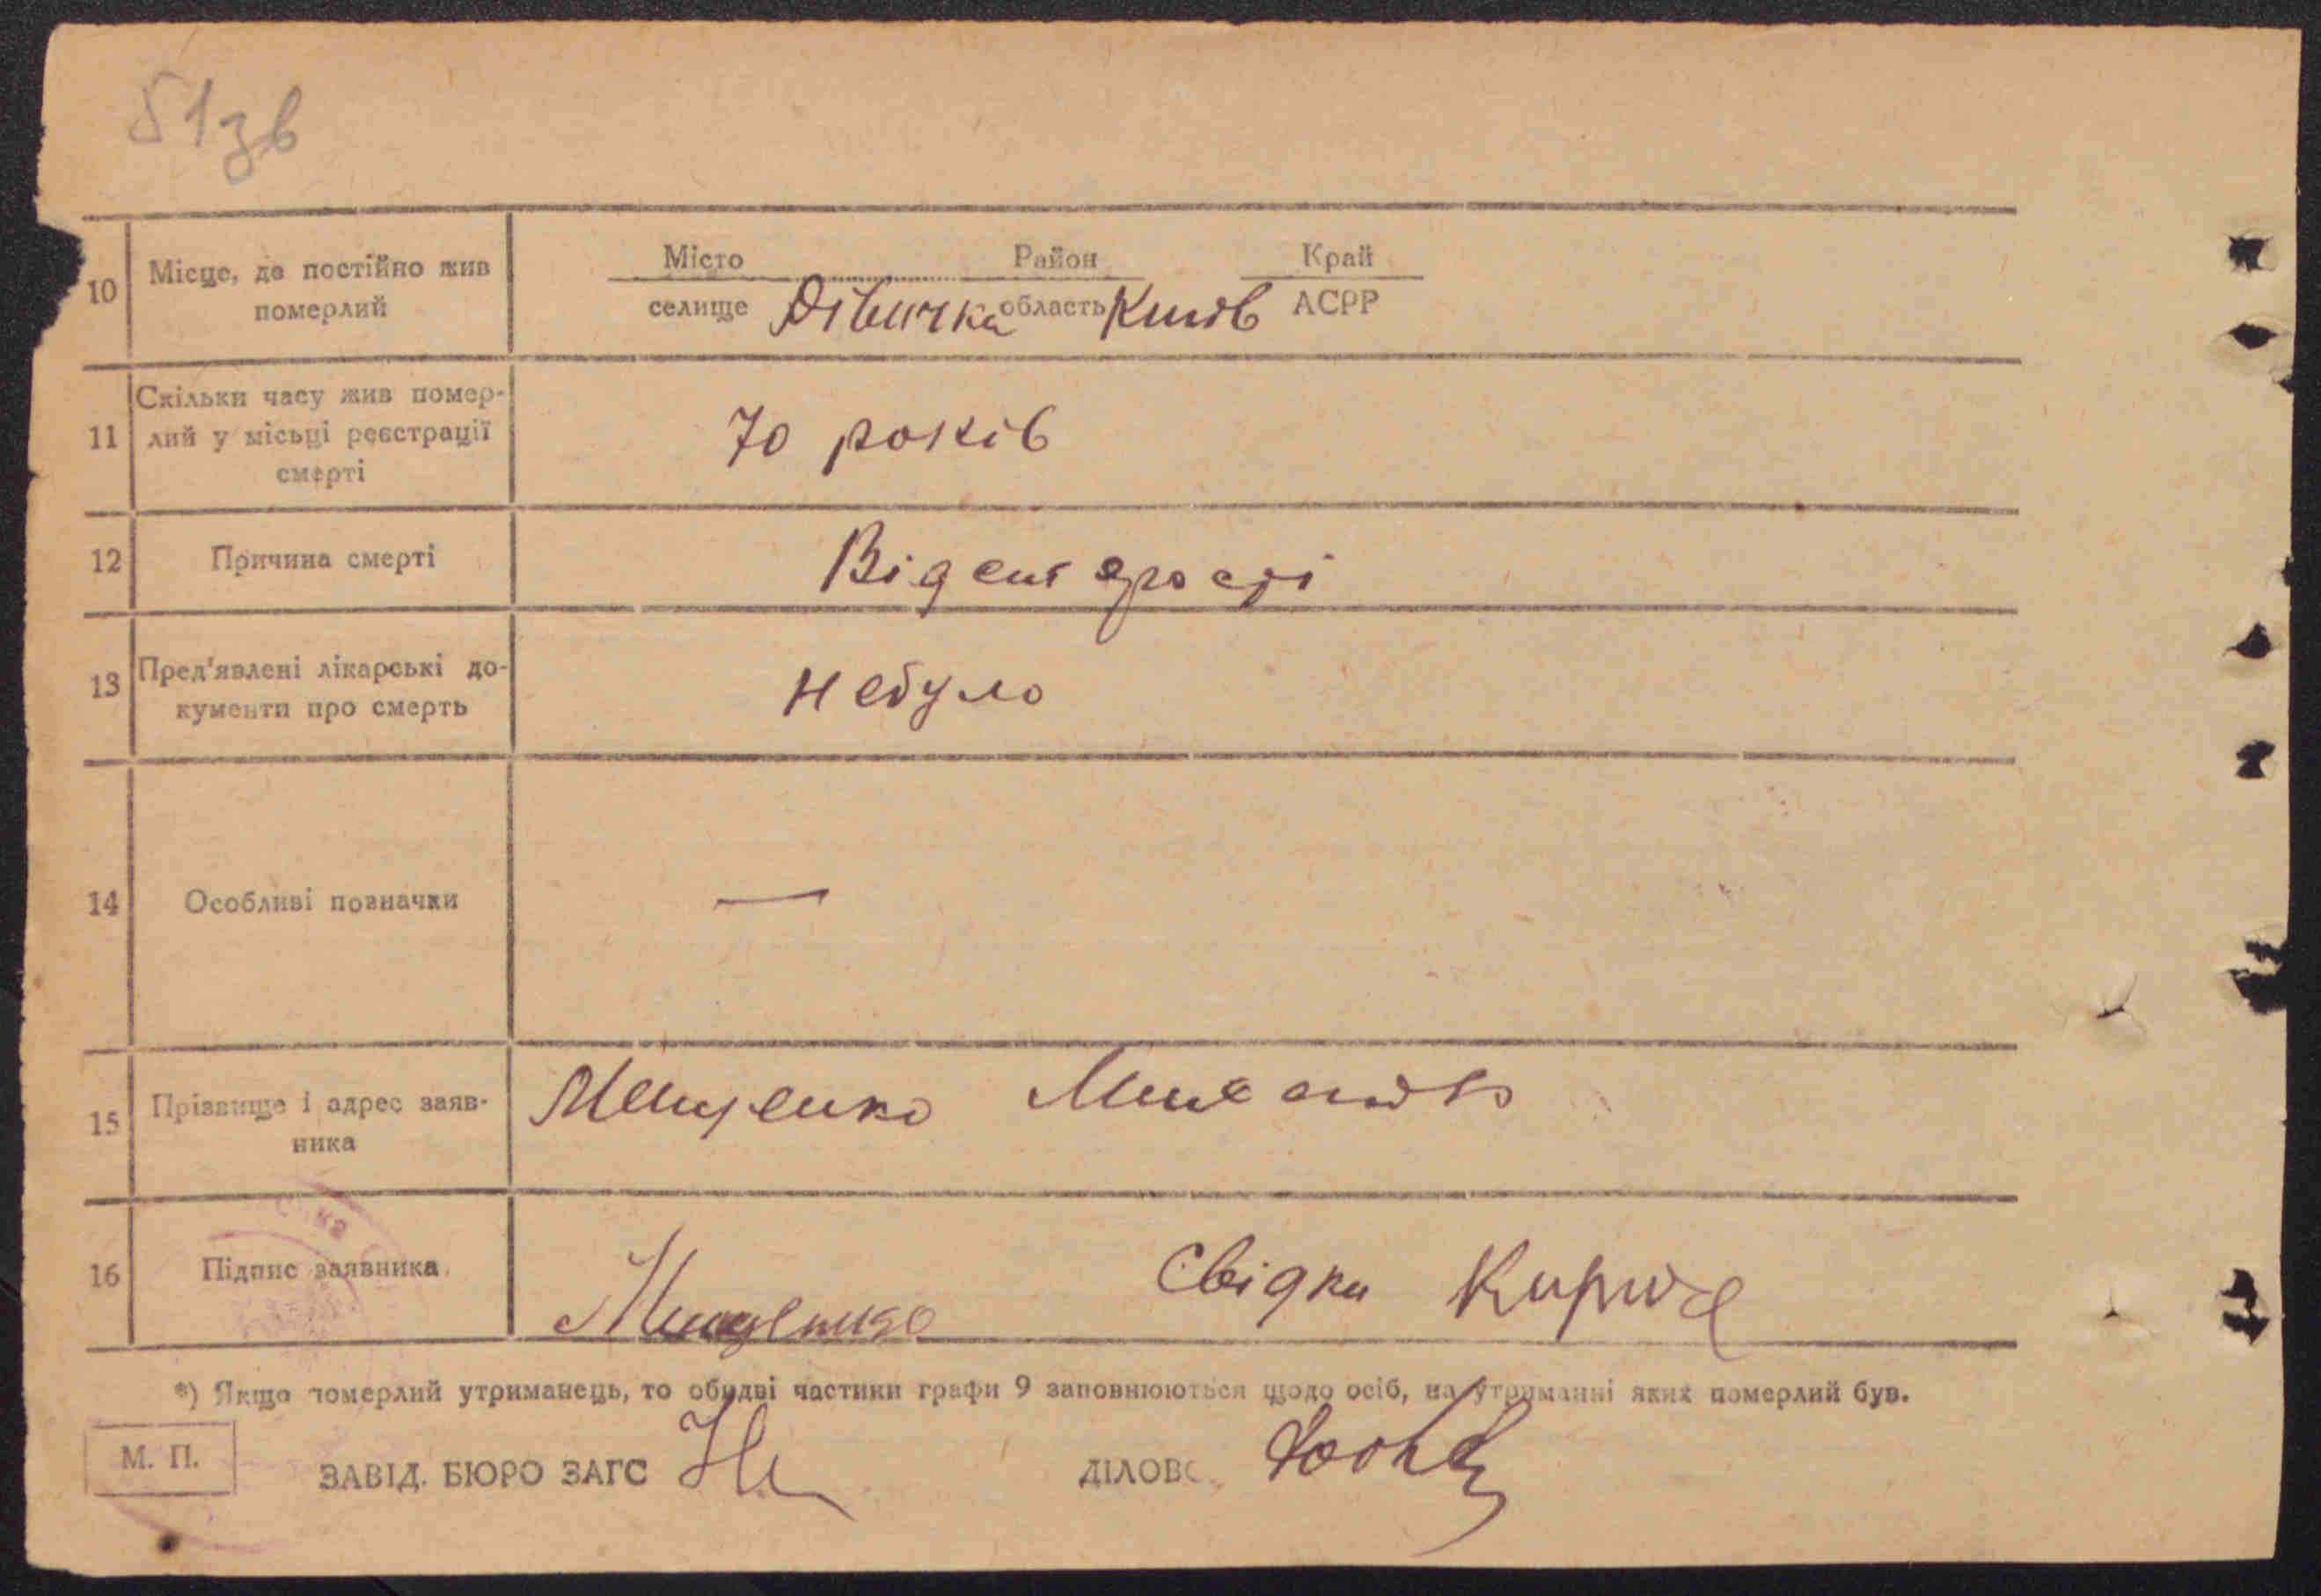 51зв
10 Місце, де постійно жив померлий
Місто Район Край
селище Дівичка область Київ АСРР
11 Скільки часу жив помер-
лий у місьці реєстрації
смерті
70 років
12 Причина смерті Від старості
13 Пред'явлені лікарські до-
кументи про смерть
небуло
14 Особливі позначки —
15 Прізвище і адрес заяв-
ника
Мищенко
16 Підпис заявника
Мищенко Свідки
*) Якщо померлий утриманець, то обидві частини графи 9 заповнюються щодо осіб, на утриманні яких померлий був.
М. П. ЗАВІД. БЮРО ЗАГС ДІЛОВ